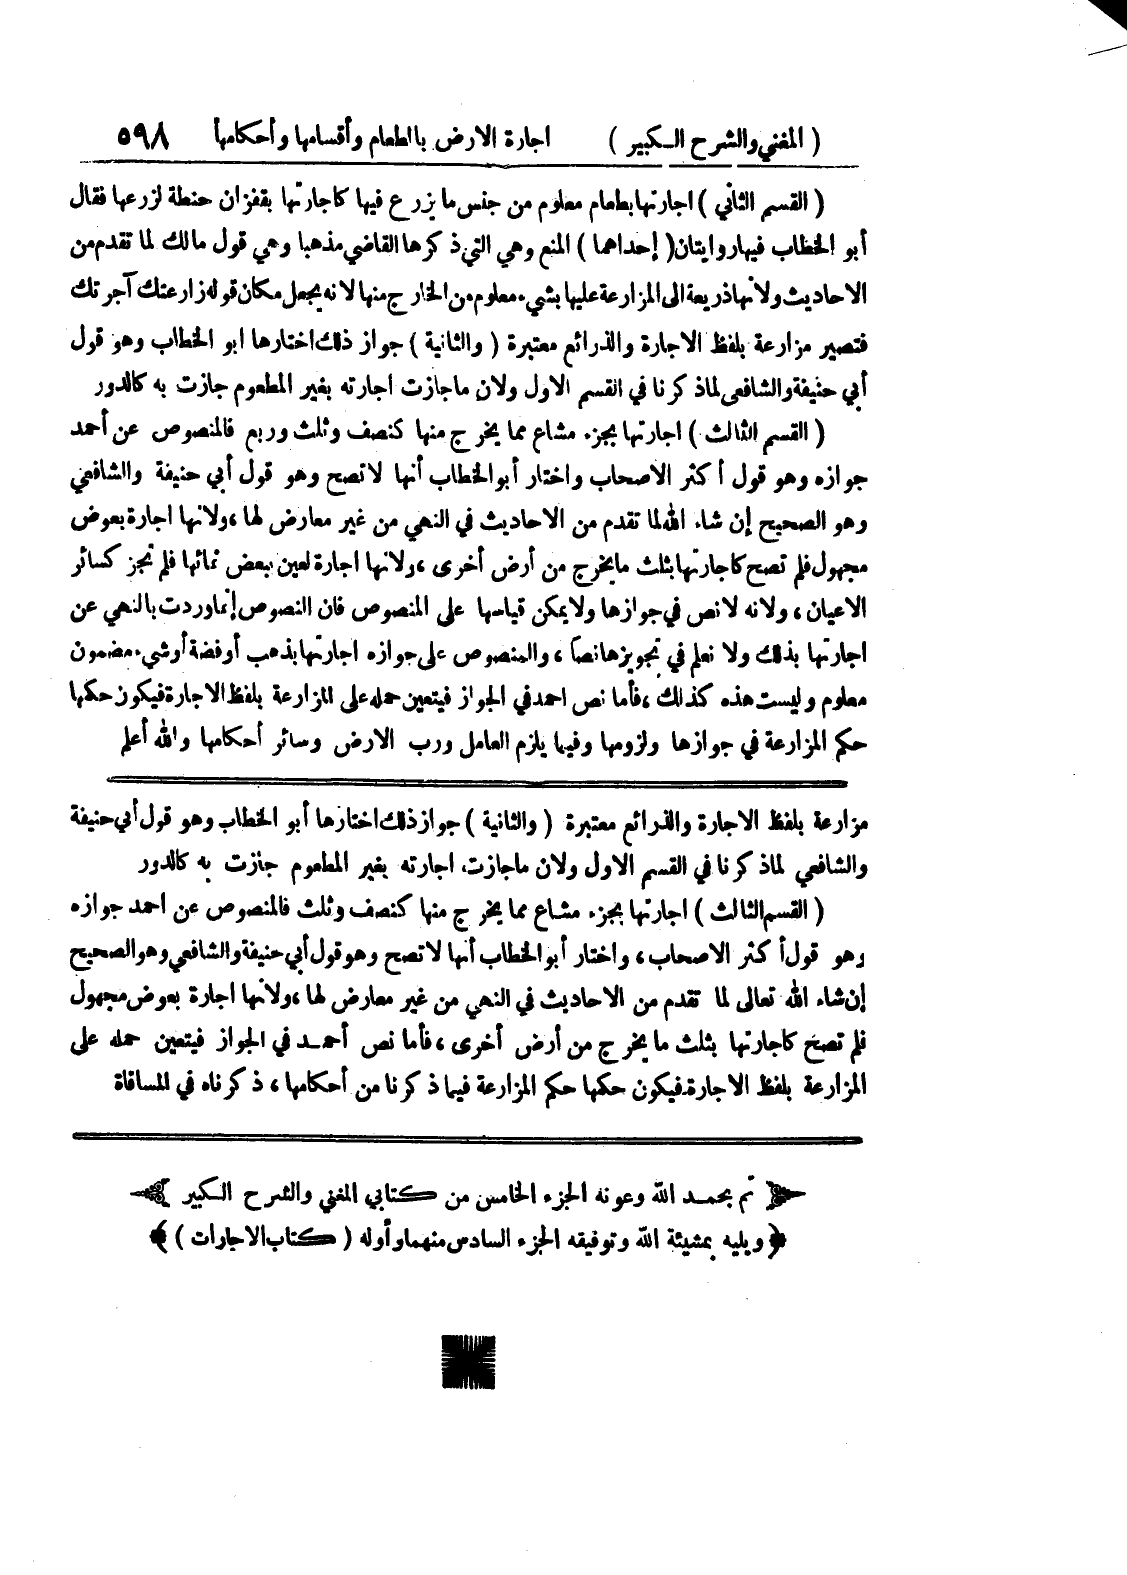 ( المغني والشرح الكبير ) اجارة الارض بالطعام وأقسامها وأحكامها ٥٩٨
( القسم الثاني ) اجارتها بطعام معلوم من جنس ما يزرع فيها كاجارتها بقفزان حنطة لزرعها فقال
أبو الخطاب فيها روايتان ( إحداهما ) المنع وهي التي ذكرها القاضي مذهبا وهي قول مالك لما تقدم من
الاحاديث ولانها ذريعة الى المزارعة عليها بشيء معلوم من الخارج منها لانه يجعل مكان قوله زارعتك آجرتك
فتصير مزارعة بلفظ الاجارة والذرائع معتبرة ( والثانية ) جواز ذلك اختارها ابو الخطاب وهو قول
أبي حنيفة والشافعي لما ذكرنا في القسم الاول ولان ما جازت اجارته بغير المطعوم جازت به كالدور
( القسم الثالث ) اجارتها بجزء مشاع مما يخرج منها كنصف وثلث وربع فالمنصوص عن أحمد
جوازه وهو قول أكثر الاصحاب واختار أبو الخطاب أنها لا تصح وهو قول أبي حنيفة والشافعي
وهو الصحيح إن شاء الله لما تقدم من الاحاديث في النهي من غير معارض لها ، ولانها اجارة بعوض
مجهول فلم تصح كاجارتها بثلث ما يخرج من أرض أخرى ، ولانها اجارة لعين ببعض نمائها فلم تجز كسائر
الاعيان ، ولانه لا نص في جوازها ولا يمكن قياسها على المنصوص فان النصوص إنما وردت بالنهي عن
اجارتها بذلك ولا نعلم في تجويزها نصا ، والمنصوص على جوازه اجارتها بذهب أو فضة أو شيء مضمون
معلوم وليست هذه كذلك ، فأما نص احمد في الجواز فيتعين حمله على المزارعة بلفظ الاجارة فيكون حكمها
حكم المزارعة في جوازها ولزومها وفيما يلزم العامل ورب الارض وسائر أحكامها والله أعلم
مزارعة بلفظ الاجارة والذرائع معتبرة ( والثانية ) جواز ذلك اختارها أبو الخطاب وهو قول أبي حنيفة
والشافعي لما ذكرنا في القسم الاول ولان ما جازت اجارته بغير المطعوم جازت به كالدور
( القسم الثالث ) اجارتها بجزء مشاع مما يخرج منها كنصف وثلث فالمنصوص عن احمد جوازه
وهو قول أكثر الاصحاب ، واختار أبو الخطاب أنها لا تصح وهو قول أبي حنيفة والشافعي وهو الصحيح
إن شاء الله تعالى لما تقدم من الاحاديث في النهي من غير معارض لها ، ولانها اجارة بعوض مجهول
فلم تصح كاجارتها بثلث ما يخرج من أرض أخرى ، فأما نص أحمد في الجواز فيتعين حمله على
المزارعة بلفظ الاجارة فيكون حكمها حكم المزارعة فيما ذكرنا من أحكامها ، ذكرناه في المساقاة
تم بحمد الله وعونه الجزء الخامس من كتابي المغني والشرح الكبير
ويليه بمشيئة الله وتوفيقه الجزء السادس منهما وأوله ( كتاب الاجارات )